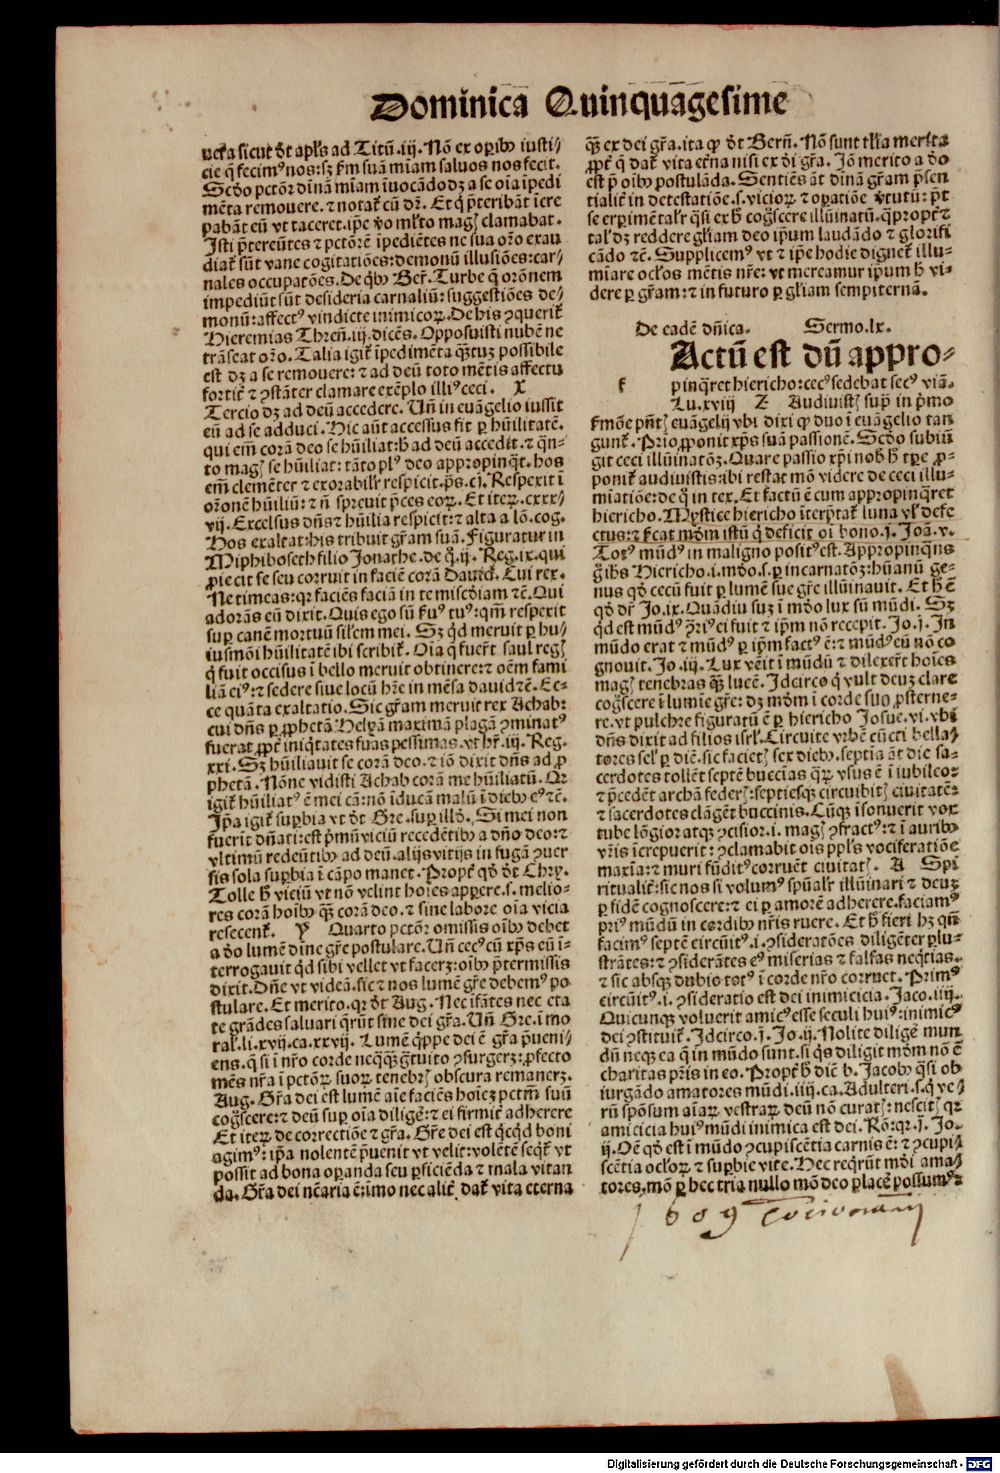 Dominica Quinquagesime
vera sicut dt apls ad Titū .iij. Nō ex oꝑibꝰ iusti/
cie q̄ fecimꝰ nos: sꝫ ẜm suā mīam saluos nos fecit.
Scd̄o pctōꝛ dīnā mīam īuocādo dꝫ a se oīa īpedi
mēta remouere. ⁊ notat̄ cū dꝛ. Et q̇ p̄teribāt īcre
pabāt eū vt taceret. ip̄e ꝟo ml̄to magꝭ clamabat.
Isti p̄tereūtes ⁊ pctōrē īpediētes ne sua oꝛo exau
diat̄ sūt vane cogitatōes: demonū illusiōes: car/
nales occupatōes. De qͥbꝰ Ber̄. Turbe q̄ oꝛonem
impediūt sūt desideria carnaliū: suggestiōes de/
monū: affectꝰ vindicte inimicoꝝ. De his ꝯquerit̄
Hieremias Thren̄ .iij. dicēs. Opposuisti nubē ne
trāseat oꝛo. Talia igit̄ īpedimēta q̄ꝫtuꝫ possibile
est dꝫ a se remouere: ⁊ ad deū toto mētis affectu
fortit̄ ⁊ ꝯstāter clamare exēplo illiꝰ ceci. X
Tercio dꝫ ad deū accedere. Vn̄ in euāgelio iussit
eū ad se adduci. Hic aūt accessus fit ꝑ hūilitatē.
qui em̄ corā deo se hūiliat: h̄ ad deū accedit. ⁊ q̄n-
to magꝭ se hūiliat: tāto plꝰ deo appropinq̄t. hos
em̄ clemēter ⁊ exorabilr̄ respicit. p̄s .cj. Respexit ī
oꝛonē hūiliū: ⁊ n̄ spreuit p̄ces eoꝝ. Et iteꝝ .cxxx/
vij. Excelsus dn̄s ⁊ hūilia respicit: ⁊ alta a lō. cog.
Hos exaltat: his tribuit gr̄am suā. Figuratur in
Miphiboseth filio Jonathe. de q̊ .ij. Reg. ix. qui
ꝓiecit se seu corruit in faciē corā Dauid. Cui rex.
Ne timeas: qꝛ faciēs faciā in te miscd̄iam ⁊c̄. Qui
adorās eū dixit. Quis ego sū ẜuꝰ tuꝰ: qm̄ respexit
suꝑ canē mortuū silem mei. Sꝫ qͥd meruit ꝑ hu/
iusmōi hūilitatē ibi scribit̄. Oīa q̄ fuer̄t Saul regꝭ
q̇ fuit occisus ī bello meruit obtinere: ⁊ oēm fami
liā eiꝰ: ⁊ sedere siue locū hr̄e in mēsa dauid ⁊c̄. Ec-
ce quāta exaltatio. Sic gr̄am meruit rex Achab:
cui dn̄s ꝑ ꝓphetā Helyā maximā plagā ꝯminatꝰ
fuerat ꝓpt̄ īniq̇tates suas pessimas. vt hr̄ .iij. Reg.
xxi. Sꝫ hūiliauit se corā deo. ⁊ iō dixit dn̄s ad ꝓ
phetā. Nōne vidisti Achab corā me hūiliatū. Qꝛ
igit̄ hūiliatꝰ ē mei cā: nō īducā malū ī diebꝰ eꝰ ⁊c̄.
Ip̄a igit̄ suꝑbia vt dt̄ Gre. suꝑ illō. Si mei non
fuerīt dn̄ati: est p̄mū viciū recedētibꝰ a dn̄o deo: ⁊
vltimū redeūtibꝰ ad deū. alijs vitijs in fugā ꝯuer
sis sola suꝑbia ī cāpo manet. Propt̄ qd̄ dt̄ Chry.
Tolle h̄ viciū vt nō velint hoīes apꝑere. s. melio-
res corā hoībꝰ q̄ꝫ corā deo. ⁊ sine labore oīa vicia
resecent̄. Y Quarto pctōꝛ omissis oībꝰ debet
a d̄o lumē dīne gr̄e postulare. Vn̄ cecꝰ cū xp̄s eū ī-
terrogauit qͥd sibi vellet vt facerꝫ: oībꝰ p̄termissis
dixit. Dn̄e vt videā. sic ⁊ nos lumē gr̄e debemꝰ po
stulare. Et merito. qꝛ dt̄ Aug. Nec īfātes nec eta
te grādes saluari q̄rūt sine dei gr̄a. Vn̄ Gre. ī mo
ral. li. xvij. ca. xxvij. Lumē q̄ppe dei ē gr̄a p̄ueni/
ens. q̄ si ī nr̄o corde neq̄q̄ꝫ g̊tuito ꝯsurgerꝫ: ꝓfecto
mēs nr̄a ī pctōꝝ suoꝝ tenebrꝭ obscura remanerꝫ.
Aug. Gr̄a dei est lumē aīe faciēs hoīeꝫ pctm̄ suū
cog̊scere: ⁊ deū suꝑ oīa diligē. ⁊ ei firmit̄ adherere
Et iteꝝ de correctiōe ⁊ gr̄a. Gr̄e dei est q̇cq̇d boni
agimꝰ: ip̄a nolentē p̄uenit vt velit: volētē seq̇t̄ vt
possit ad bona oꝑanda seu ꝑficiēda ⁊ mala vitan
da. Gr̄a dei nēaria ē: īmo nec alit̄ dat̄ vita eterna
q̄ꝫ ex dei gr̄a. ita qꝫ dt̄ Bern̄. Nō sunt tl̄ia merita
ꝓpt̄ q̄ dat̄ vita et̄na nisi ex dī gr̄a. Jō merito a d̄o
est p̄ oībꝰ postulāda. Sentiēs āt dīnā gr̄am p̄sen
tialit̄ in detestatiōe .s. vicioꝝ ⁊ oꝑatiōe ꝟtutū: p̄t
se exꝑimētalr̄ q̄si ex h̄ cog̊scere illūinatū. q̄propt̄ ⁊
tal̓ dꝫ reddere gl̄iam deo ip̄um laudādo ⁊ glorifi
cādo ⁊c̄. Supplicemꝰ vt ⁊ ip̄e hodie dignet̄ illu-
miare ocl̄os mētis nr̄e: vt mereamur ip̄um h̄ vi-
dere ꝑ gr̄am: ⁊ in futuro ꝑ gl̄iam sempiternā.
De eadē dn̄ica. Sermo .lx.
Factū est dū appro-
f pinq̄ret hiericho: cecꝰ sedebat secꝰ viā.
Lu. xviij Z Audiuistꝭ suꝑ in p̄mo
ẜmōe pn̄tꝭ euāgelij vbi dixi qꝫ duo ī euāgelio tan
gunt̄. Prīo ꝓponit xp̄s suā passionē. Scd̄o subiū
git ceci illūinatōꝫ. Quare passio xp̄i nob̄ h̄ tp̄e ꝓ-
ponit̄ audiuistis: ibi restat mō videre de ceci illu-
miatiōe: de q̊ in tex. Et factū ē cum appropinq̄ret
hiericho. Mystice hiericho īterp̄tat̄ luna vl̓ defe
ctus: ⁊ ẜcat mūdm istū q̇ deficit oī bono. j. Joā. v.
Totꝰ mūdꝰ in maligno positꝰ est. Appropinq̄ns
g̊ ihs̄ Hiericho .i. mūdo .s. ꝑ incarnatōꝫ: hūanū ge-
nus qd̄ cecū fuit ꝑ lumē sue gr̄e illūinauit. Et h̄ ē
qd̄ dr̄ Jo. ix. Quādiu suꝫ ī mūdo lux sū mūdi. Sꝫ
qͥd est mūdꝰ p̄riꝰ ei fuit ⁊ ip̄m nō recepit. Jo. j. In
mūdo erat ⁊ mūdꝰ ꝑ ip̄m factꝰ ē: ⁊ mūdꝰ eū nō co
gnouit. Jo. iij. Lux venīt ī mūdū ⁊ dilexer̄t hoīes
magꝭ tenebras q̄ꝫ lucē. Idcirco q̇ vult deuꝫ clare
cog̊scere ī lumīe gr̄e: dꝫ mūdm ī corde suo ꝓsterne-
re. vt pulchre figuratū ē ꝑ hiericho Josue. vi. vbi
dn̄s dixit ad filios isrl̓. Circuite vrbē cūcti bella/
tores sel̓ ꝑ diē. sic facietꝭ sex diebꝰ. septia āt die sa-
cerdotes tollēt septē buccias q̄ꝝ vsus ē ī iubileo:
⁊ p̄cedēt archā federꝭ: septiesqꝫ circuibitꝭ ciuitatē:
⁊ sacerdotes clāgēt buccinis. Cūqꝫ īsonuerit vox
tube lōgior atqꝫ ꝯcisior. i. magꝭ ꝯfractꝰ: ⁊ ī auribꝰ
vr̄is īcrepuerit: ꝯclamabit oīs ppl̓s vociferatiōe
maxīa: ⁊ muri fūditꝰ corruēt ciuitatꝭ. A Spi
ritualit̄: sic nos si volumꝰ spūalr̄ illūinari ⁊ deuꝫ
ꝑ fidē cognoscere: ⁊ ei ꝑ amorē adherere. faciamꝰ
priꝰ mūdū in cordibꝰ nr̄is ruere. Et h̄ fieri hꝫ qm̄
facimꝰ septē circuitꝰ. i. ꝯsideratōes diligēter ꝑlu-
strātes: ⁊ ꝯsiderātes eꝰ miserias ⁊ falsas neq̄tias.
⁊ sic absqꝫ dubio totꝰ ī corde nr̄o corruet. Primꝰ
circuitꝰ. i. ꝯsideratio est dei inimicicia. Jaco. iiij.
Quicunqꝫ voluerit amicꝰ esse seculi huiꝰ: inimicꝰ
dei ꝯstituit̄. Idcirco .j. Jo. ij. Nolite diligē mun
dū neqꝫ ea q̄ in mūdo sunt. si q̇s diligit mūdm nō ē
charitas pr̄is in eo. Propt̄ h̄ diē b. Jacobꝰ q̄si ob
iurgādo amatores mūdi .iiij. ca. Adulteri .s. q̇ ve/
rū spōsum aīaꝝ vestraꝝ deū nō curatꝭ: nescitꝭ qꝛ
amicicia huiꝰ mūdi inimica est dei. Rō: qꝛ .j. Jo.
ij. Oē qd̄ est ī mūdo ꝯcupiscētia carnis ē: ⁊ ꝯcupi/
scētia ocl̄oꝝ ⁊ suꝑbie vite. Hec req̇rūt mūdi ama/
tores. mō ꝑ hec tria nullo mō deo placē possumꝰ:
1609
Digitalisierung gefördert durch die Deutsche Forschungsgemeinschaft - DFG